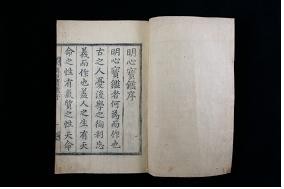 明心寶鑑序
明心寶鑑者何為而作也
古之人憂後學之徇利忘
義而作也盖人之生有天
命之性有氣質之性天命